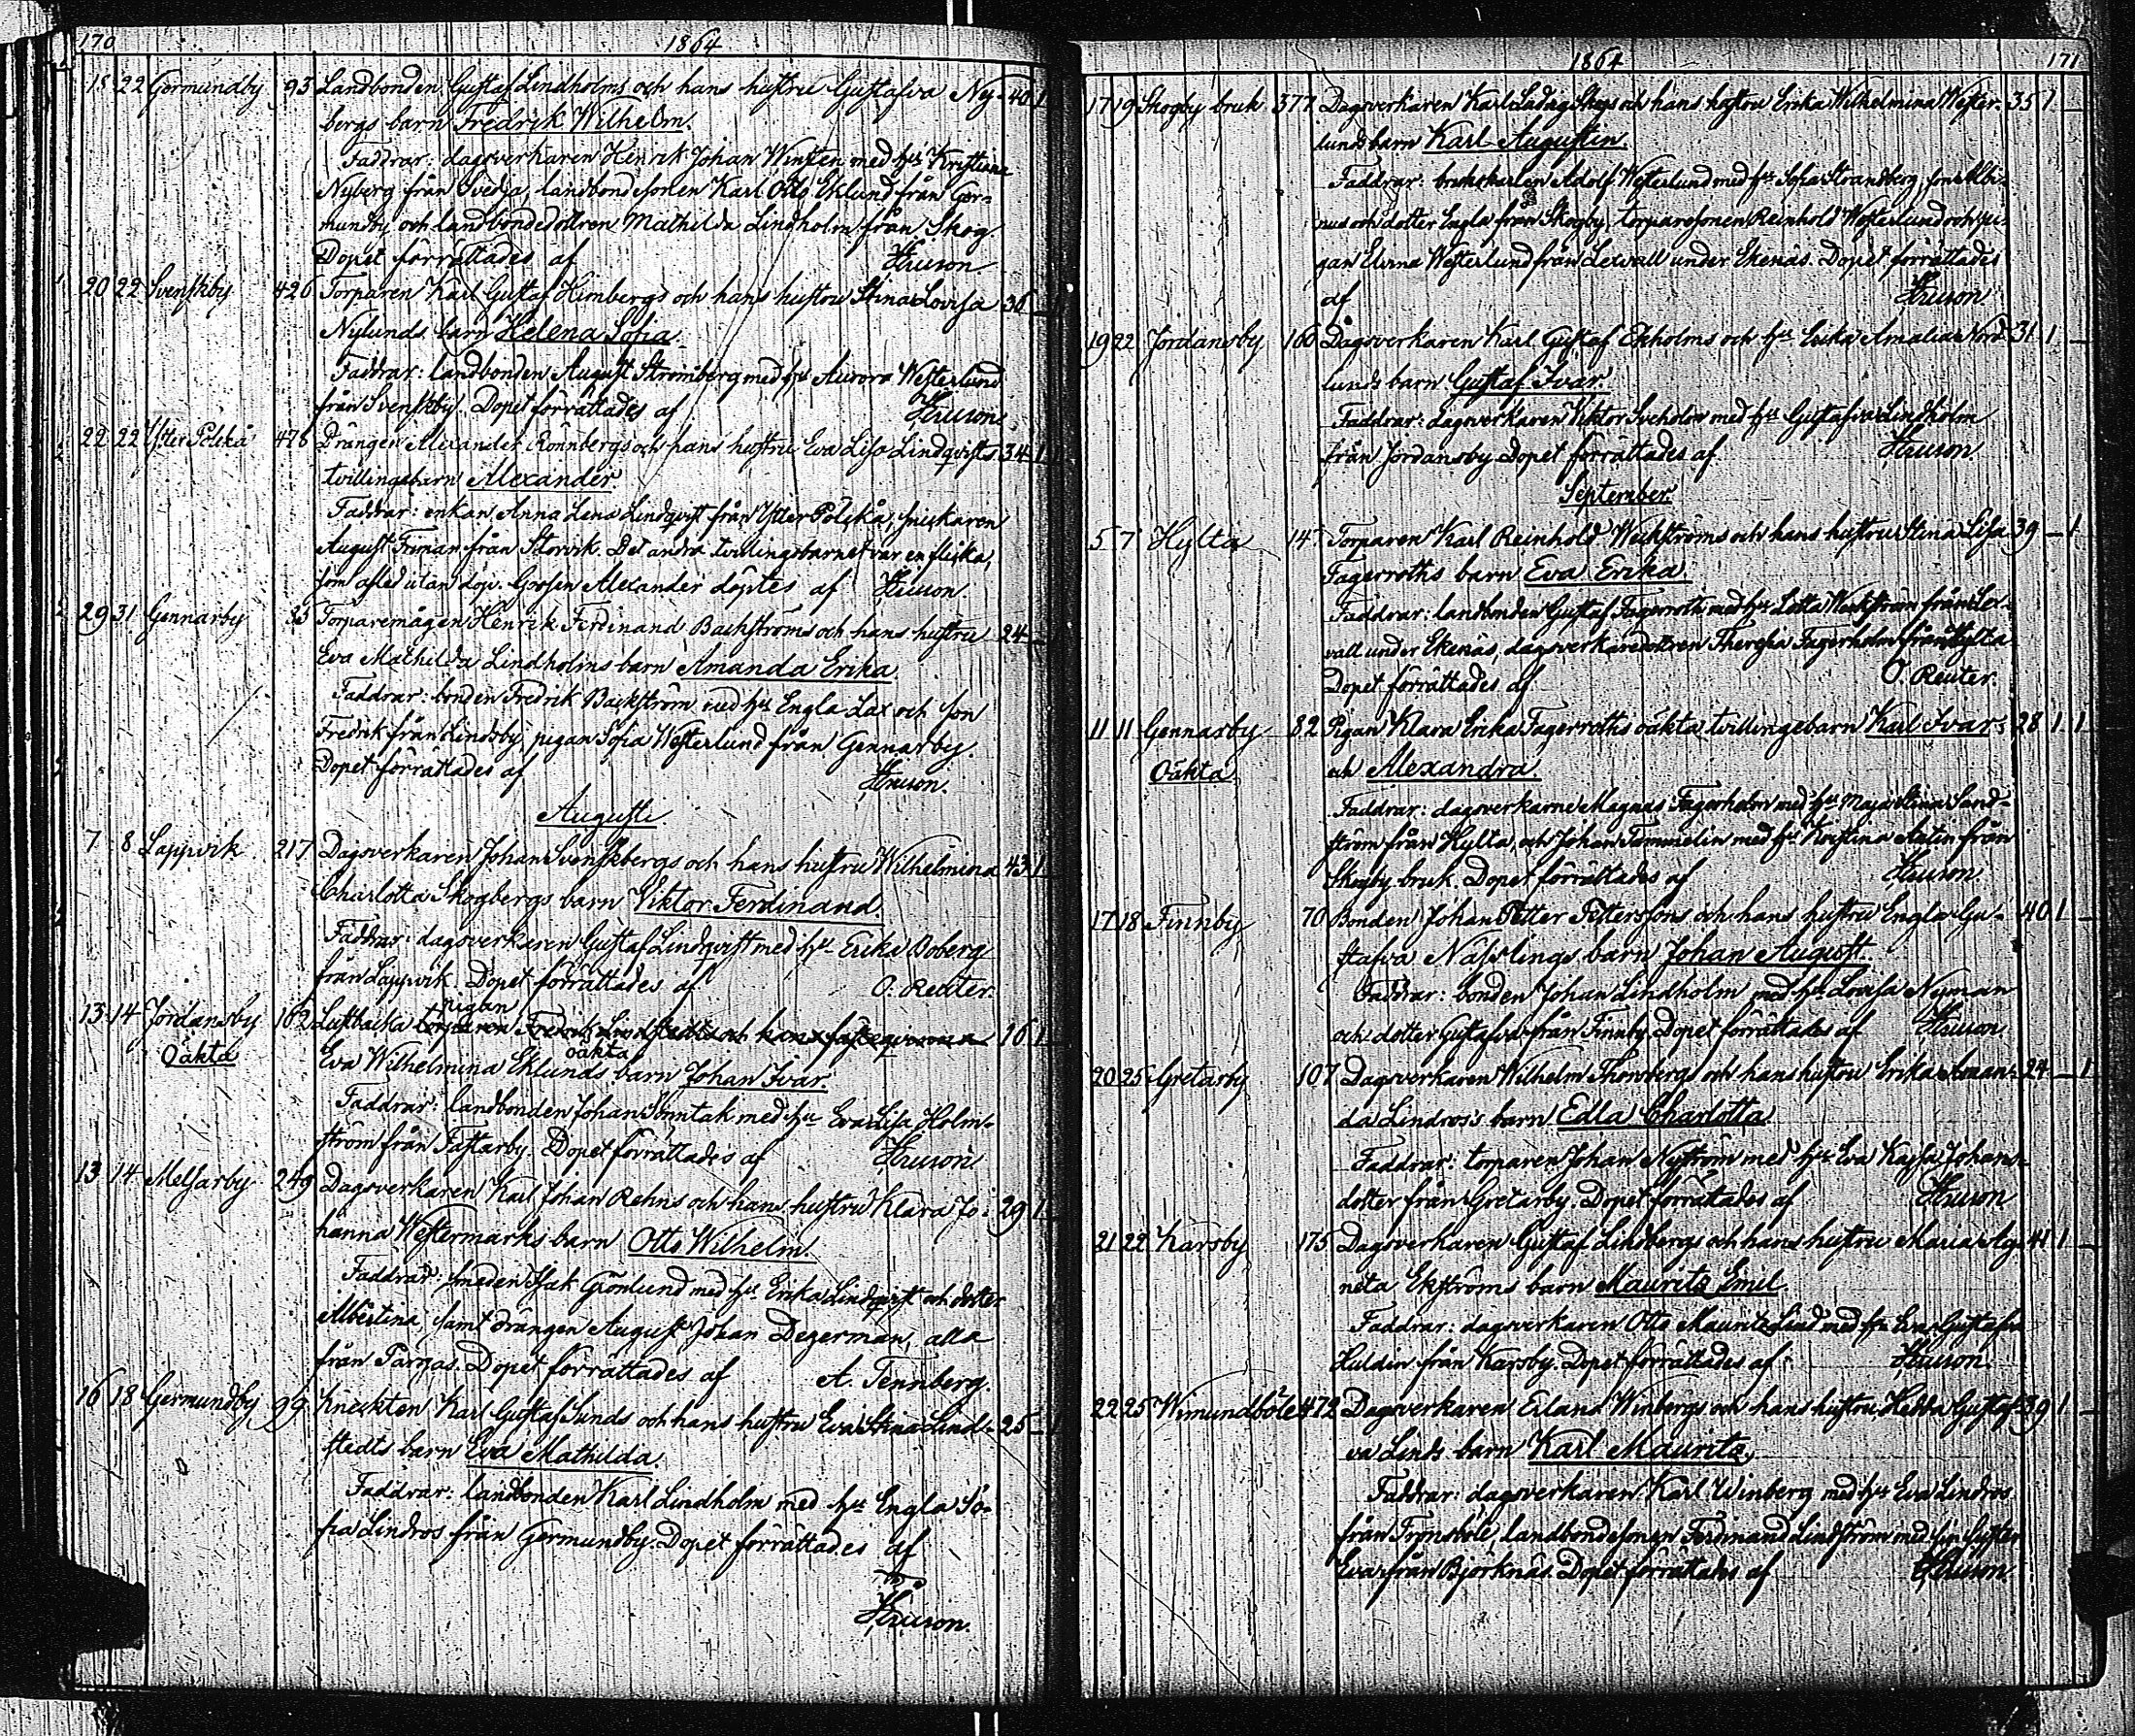 170 1864
18 22 Germundby 93 Landbonden Gustaf Lindholms och hans hustru Gustafva Ny- 40 1
bergs barn Fredrik Wilhelm.
Faddrar: dagsverkaren Henrik Johan Winsten med hu Kristiana
Nyberg från Svedja, landbondesonen Karl Otto Eklund från Ger-
mundby och landbondedottren Mathilda Lindholm från Skog.
Dopet förrättades af
20 22 Svenskby 426 Torparen Karl Gustaf Himbergs och hans hustru Stina Lovisa 36 1
Nylunds barn Helena Sofia.
Faddrar: landbonden August Strömberg med hu Aurora Westerlund
från Svenskby. Dopet förrättades af
22 22 Ytter Pölskå 478 Drängen Alexander Rönnbergs och hans hustru Eva Lisa Lindqvists 34 1
tvillingebarn Alexander
Faddrar: enkan Anna Lena Lindqvist från Ytter Pölskå, snickaren
August Friman från Storvik. Det andra tvillingebarnet var en flicka,
som afled utan dop. Gossen Alexander döptes af
29 31 Gennarby 85 Torparemågen Henrik Ferdinand Backströms och hans hustru 24 1
Eva Mathilda Lindholms barn Amanda Erika.
Faddrar: bonden Fredrik Backström med hu Engla Lax och son
Fredrik från Lindsby, pigan Sofia Westerlund från Gennarby.
Dopet förrättades af
Augusti
7 8 Lappvik 217 Dagsverkaren Johan Svenskbergs och hans hustru Wilhelmina 43 1
Charlotta Skogbergs barn Viktor Ferdinand.
Faddrar: dagsverkaren Gustaf Lindqvist med hu Erika Boberg
från Lappvik. Dopet förrättades af O. Reuter.
pigan
13 14 Jordansby 162 torparen Fredrik Lindstedts och hans fästeqvinna 16 1
oäkta
Oäkta Eva Wilhelmina Eklunds barn Johan Ivar.
Faddrar: landbonden Johan Sönntak med hu Eva Lisa Holm-
ström från Fastarby. Dopet förrättades af
13 14 Melsarby 249 Dagsverkaren Karl Johan Rehns och hans hustru Klara Jo- 29 1
hanna Westermarks barn Otto Wilhelm.
Faddrar: smeden Isak Grönlund med hu Erika Lindqvist och dotter
Albertina, samt drängen August Johan Degerman, alla
från Pargas. Dopet förrättades af A. Tennberg.
16 18 Germundby 99 Knekten Karl Gustaf Sunds och hans hustru Eva Stina Lind- 25 1
stedts barn Eva Mathilda.
Faddrar: landbonden Karl Lindholm med hu Engla So-
fia Lindros från Germundby. Dopet förrättades af
1864 171
17 19 Skogby bruk 377 Dagsverkaren Karl Skogs och hans hustru Erika Wilhelmina Wester- 35 1
lunds barn Karl Augustin.
Faddrar: brukskarlen Adolf Westerlund med hu Sofia Strandberg, son Albi-
nus och dotter Engla från Skogby, torparesonen Reinhold Westerlund och pi-
gan Elvina Westerlund från Lexvall under Ekenäs. Dopet förrättades
af
19 22 Jordansby 160 Dagsverkaren Karl Gustaf Ekholms och hu Erika Amalia Nord- 31 1
lunds barn Gustaf Ivar.
Faddrar: dagsverkaren Viktor Sveholm med hu Gustafva Lindholm
från Jordansby. Dopet förrättades af
September.
5 7 Hylta 147 Torparen Karl Reinhold Weckströms och hans hustru Stina Lisa 39 1
Fagerroths barn Eva Erika.
Faddrar: landbonden Gustaf Fagerroth med hu Lotta Weckström från Lex-
vall under Ekenäs, dagsverkaredottren Theresia Fagerholm från Hylta.
Dopet förrättades af O. Reuter.
11 11 Gennarby 82 Pigan Klara Erika Fagerroths oäkta tvillingebarn Karl Ivar 28 1 1
Oäkta och Alexandra.
Faddrar: dagsverkarne Magnus Fagerholm med hu Maja Stina Sand-
ström från Hylta, och Johan Tammelin med hu Kristina Antin från
Skogby bruk. Dopet förrättades af
17 18 Finnby 70 Bonden Johan Petter Petterssons och hans hustru Engla Gu- 40 1
stafva Nässlings barn Johan August.
Faddrar: bonden Johan Lindholm med hu Lovisa Nyman
och dotter Gustafva från Finnby. Dopet förrättades af
20 25 Gretarby 107 Dagsverkaren Wilhelm Thorsbergs och hans hustru Erika Aman- 24 1
da Lindros's barn Edla Charlotta.
Faddrar: torparen Johan Nyström med hu Eva Kajsa Johans-
dotter från Gretarby. Dopet förrättades af
21 22 Karsby 175 Dagsverkaren Gustaf Lindbergs och hans hustru Maria Ag- 41 1
neta Ekströms barn Mauritz Emil.
Faddrar: dagsverkaren Otto Mauritz Lind med hu Eva Gustafva
Huldin från Karsby. Dopet förrättades af
22 25 Wimundböle 472 Dagsverkaren Erland Winbergs och hans hustru Hedda Gustaf- 39 1
va Linds barn Karl Mauritz.
Faddrar: dagsverkaren Karl Winberg med hu Eva Lindros
från Tromsböle, landbondesonen Ferdinand Lindström med sin syster
Eva från Björknäs. Dopet förrättades af